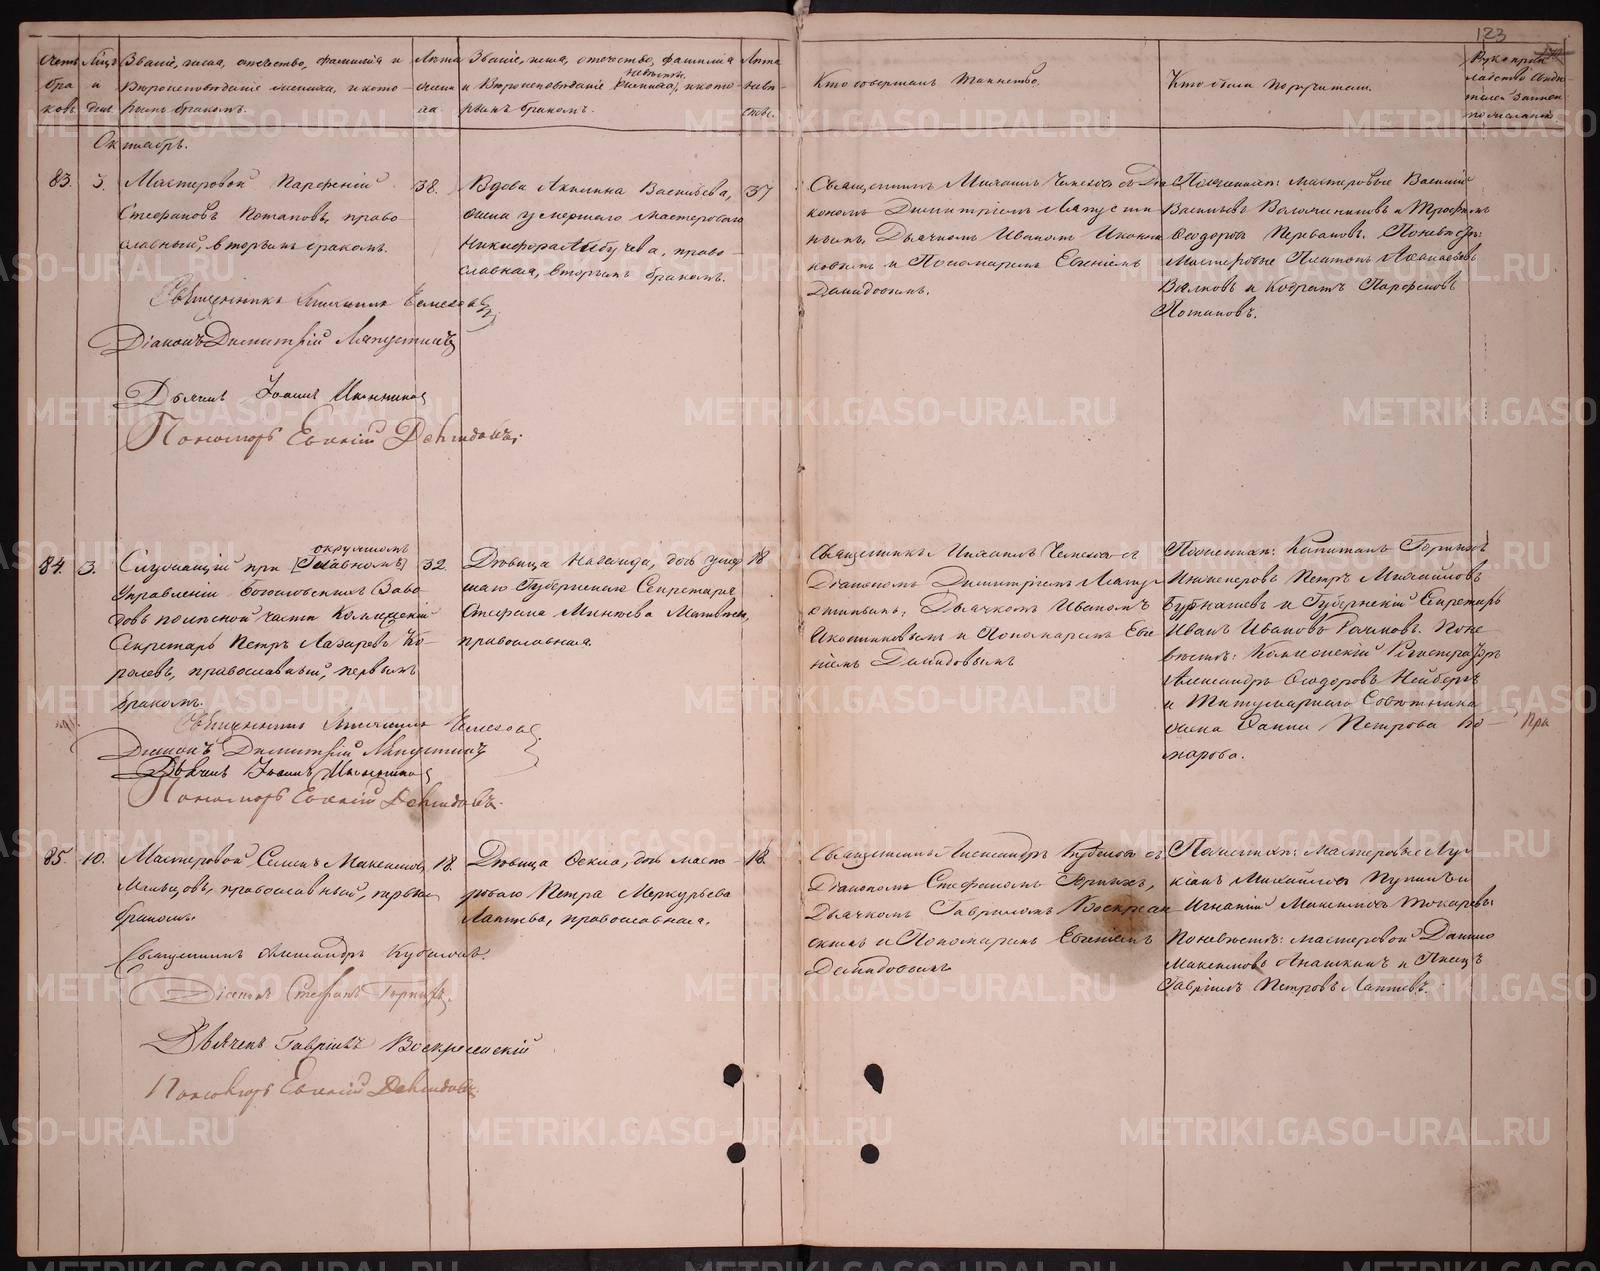 123
Счетъ
бра
ковъ.
Мѣсяцъ
и
день.
Званіе, имя, отечество, фамилія и
Вѣроисповѣданіе жениха, и кото-
рымъ бракомъ.
Лѣта
жени
ха
Званіе, имя, отечество, фамилія
и Вѣроисповѣданіе невѣсты, и кото-
рымъ бракомъ.
Лѣта
невѣ-
сты.
Кто совершалъ таинство.
Кто были поручители.
Рукоприк
ладство
Октябрь.
83.
3.
Мастеровой Парфеній
Стефановъ Потаповъ, право-
славный, вторымъ бракомъ.
38.
Вдова Акилина Васильева,
жена умершаго мастероваго
Никифора, право-
славная, вторымъ бракомъ.
37
Священникъ Михаилъ съ Діа
кономъ Димитріемъ Ляпусти
нымъ, Дьячкомъ Иваномъ Иконни
ковымъ и Пономаремъ Евгеніемъ
Давидовымъ.
По женихѣ: мастеровые Василій
Васильевъ и Трофимъ
Ѳеодоровъ. По невѣстѣ:
Мастеровые Платонъ
Волковъ и Кодратъ Парфеновъ
Потаповъ.
Священникъ Михаилъ
Діаконъ Димитрій Ляпустинъ
Дьячекъ Іоаннъ Иконниковъ
Пономарь Евгеній Давидовъ.
84.
3.
Служащій при окружномъ
Управленіи Богословскихъ Заво
довъ по лѣсной части Коллежскій
Секретарь Петръ Лазаревъ Ко-
ролевъ, православный, первымъ
бракомъ.
32.
Дѣвица Надежда, дочь умер
шаго Губернскаго Секретаря
Стефана
православная.
18
Священникъ Михаилъ съ
Діакономъ Димитріемъ Ляпу
стинымъ, Дьячкомъ Иваномъ
Иконниковымъ и Пономаремъ Евге
ніемъ Давидовымъ
По женихѣ: Капитанъ Горныхъ
Инженеровъ Петръ Михайловъ
Бурнашевъ и Губернскій Секретарь
Иванъ Ивановъ. По не
вѣстѣ: Коллежскій Регистраторъ
Александръ Ѳеодоровъ
и Титулярнаго Совѣтника
жена Петрова Ко-
марова.
Священникъ Михаилъ
Діаконъ Димитрій Ляпустинъ
Дьячекъ Іоаннъ Иконниковъ
Пономарь Евгеній Давидовъ.
85.
10.
Мастеровой Семенъ Максимовъ
Мальцовъ, православный, первымъ
бракомъ
18.
Дѣвица Ѳекла, дочь масте-
роваго Петра Меркурьева
Лаптева, православная.
18.
Священникъ Александръ съ
Діакономъ Стефаномъ Горныхъ,
Дьячкомъ Гавріиломъ Воскресен
скимъ и Пономаремъ Евгеніемъ
Давидовымъ
По женихѣ: мастеровые Лу
кіанъ Михайловъ и
Игнатій Максимовъ Токаревъ.
По невѣстѣ: мастеровой Данило
Максимовъ и Писецъ
Гавріилъ Петровъ Лаптевъ.
Священникъ Александръ
Діаконъ Стефанъ Горныхъ.
Дьячекъ Гавріилъ Воскресенскій
Пономарь Евгеній Давидовъ.
METRIKI.GASO-URAL.RU